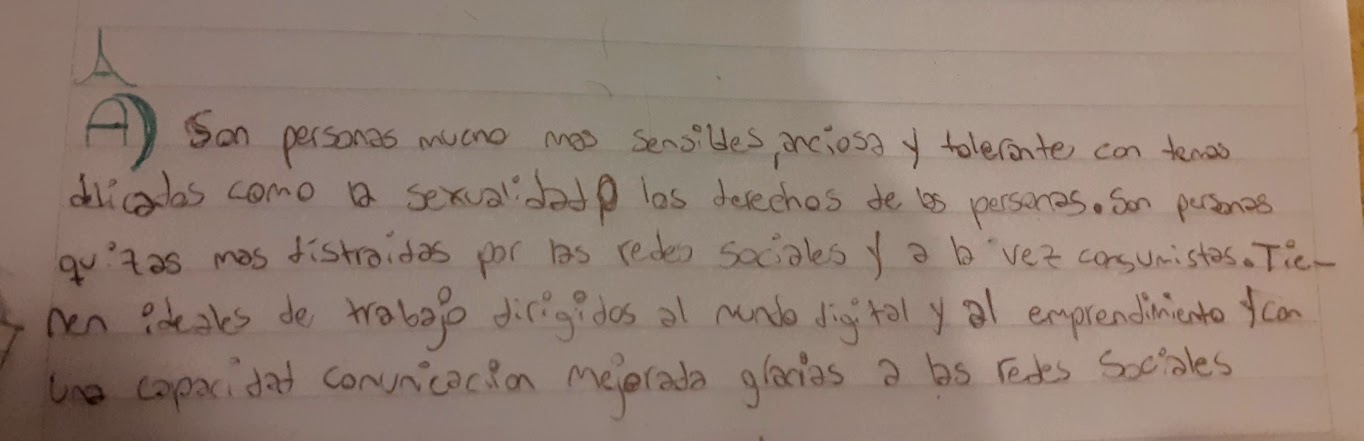 A
A) Son personas mucho mas sensibles, anciosa y tolerante con temas
delicados como la sexualidad o los derechos de las personas. Son personas
quizas mas distraidas por las redes sociales y a la vez consumistas. Tie-
nen ideales de trabajo dirigidos al mundo digital y al emprendimiento y con
una capacidad comunicacion mejorada gracias a las redes sociales